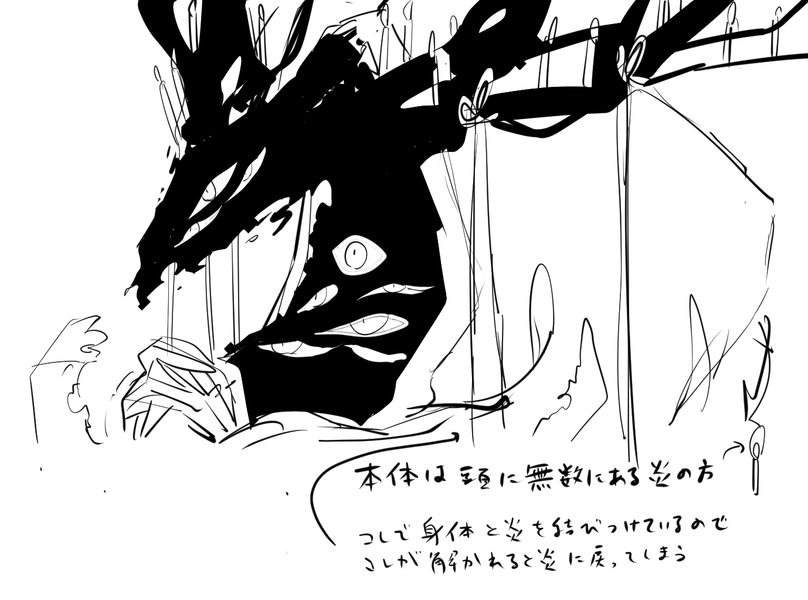 本体は頭に無数にある炎の方
コレで身体と炎を結びつけているので
コレが解かれると炎に戻ってしまう